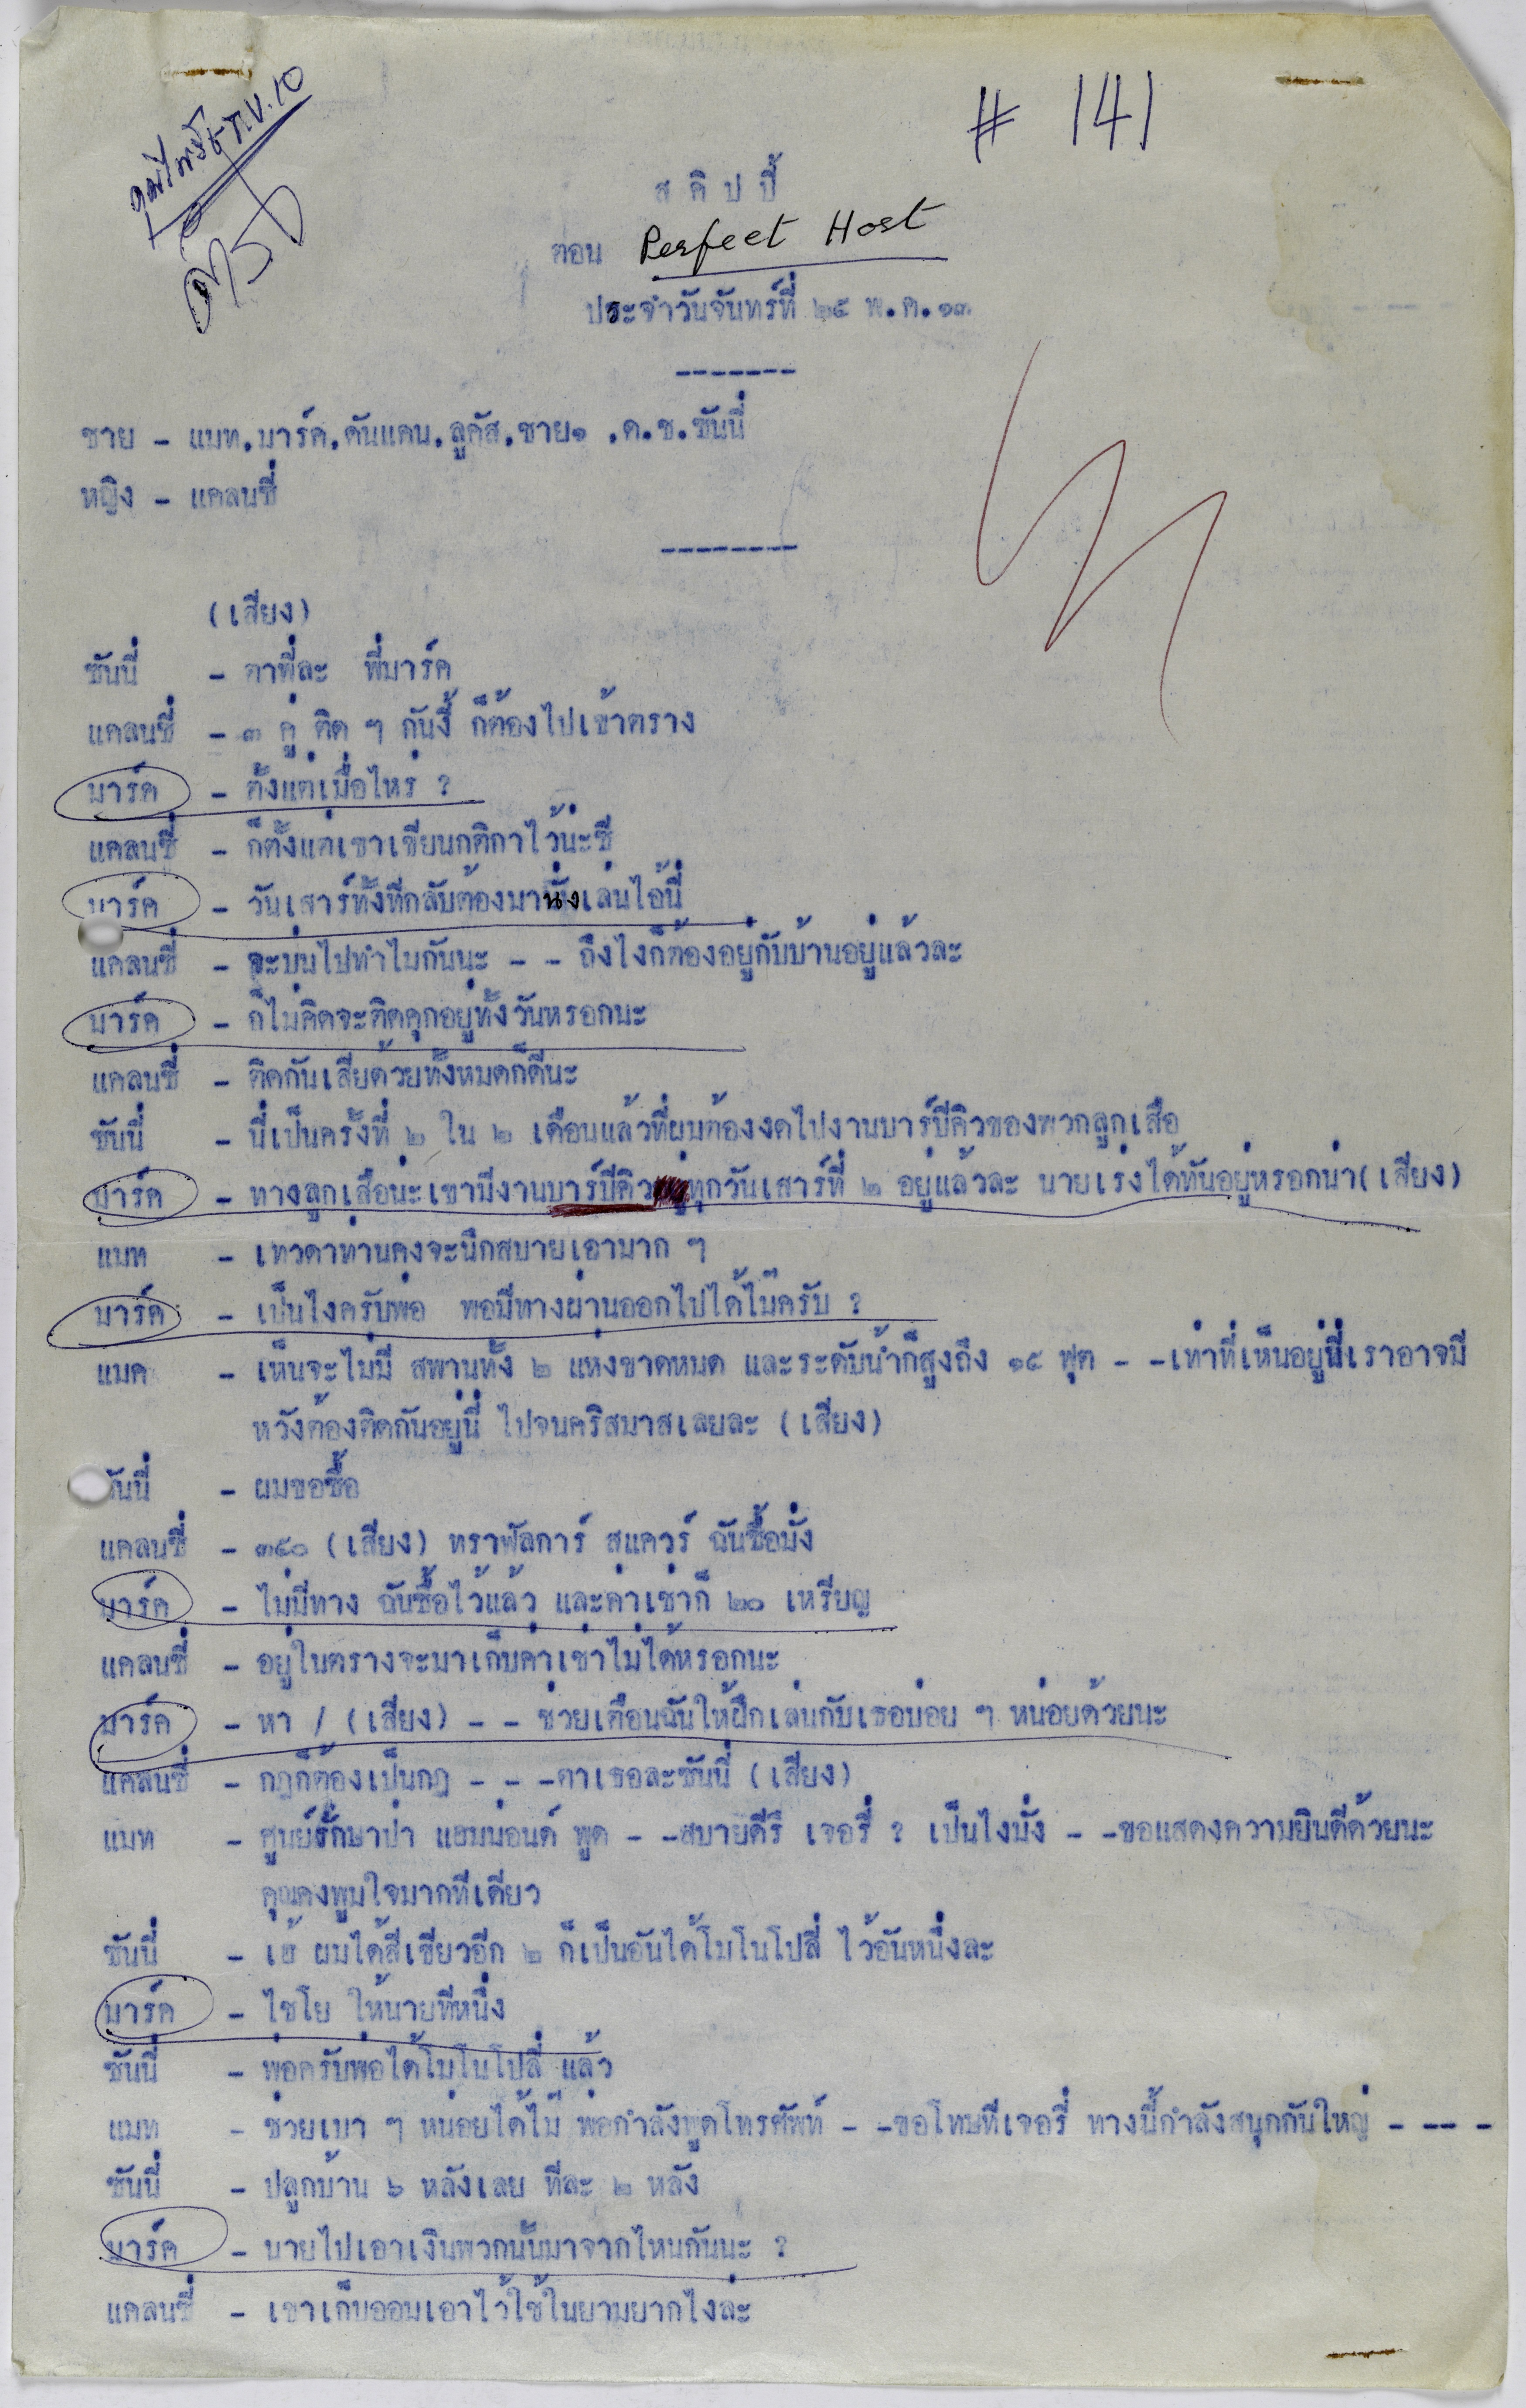 # 141
สคิปปี้
ตอน Perfect Host
ประจำวันจันทร์ที่ ๒๕ พ.ค.๑๓
-------
ชาย - แมท.มาร์ค.ดันแคน.ลูคัส.ชาย๑ .ด.ช.ซันนี่
หญิง - แคลนซี่
--------
(เสียง)
ซันนี่ - ตาพี่ละ พี่มาร์ค
แคลนซี่ - ๓ คู่ ติด ๆ กันงี้ ก็ต้องไปเข้าตราง
มาร์ค - ตั้งแต่เมื่อไหร่ ?
แคลนซี่ - ก็ตั้งแต่เขาเขียนกติกาไว้น่ะซี
มาร์ค - วันเสาร์ทั้งทีกลับต้องมานั่งเล่นไอ้นี่
แคลนซี่ - จะบ่นไปทำไมกันนะ - - ถึงไงก็ต้องอยู่กับบ้านอยู่แล้วละ
มาร์ค - ก็ไม่คิดจะติดคุกอยู่ทั้งวันหรอกนะ
แคลนซี่ - ติดกันเสียด้วยทั้งหมดก็ดีนะ
ซันนี่ - นี่เป็นครั้งที่ ๒ ใน ๒ เดือนแล้วที่ผมต้องงดไปงานบาร์บีคิวของพวกลูกเสือ
มาร์ค - ทางลูกเสือน่ะเขามีงานบาร์บีคิวทุกวันเสาร์ที่ ๒ อยู่แล้วละ นายเร่งได้ทันอยู่หรอกน่า(เสียง)
แมท - เทวดาท่านคงจะนึกสบายเอามาก ๆ
มาร์ค - เป็นไงครับพ่อ พอมีทางผ่านออกไปได้ไม๊ครับ ?
แมค - เห็นจะไม่มี สพานทั้ง ๒ แห่งขาดหมด และระดับน้ำก็สูงถึง ๑๕ ฟุต - -เท่าที่เห็นอยู่นี่เราอาจมี
หวังต้องติดกันอยู่นี่ ไปจนคริสมาสเลยละ (เสียง)
ซันนี่ - ผมขอซื้อ
แคลนซี่ - ๓๕๐ (เสียง) ทราฟัลการ์ สแควร์ ฉันซื้อมั่ง
มาร์ค - ไม่มีทาง ฉันซื้อไว้แล้ว และค่าเช่าก็ ๒๐ เหรียญ
แคลนซี่ - อยู่ในตรางจะมาเก็บค่าเช่าไม่ได้หรอกนะ
มาร์ค - หา / (เสียง) - - ช่วยเตือนฉันให้ฝึกเล่นกับเธอบ่อย ๆ หน่อยด้วยนะ
แคลนซี่ - กฎก็ต้องเป็นกฎ - - -ตาเธอละซันนี่ (เสียง)
แมท - ศูนย์รักษาป่า แฮมม่อนด์ พูด - -สบายดีรึ เจอรี่ ? เป็นไงมั่ง - -ขอแสดงความยินดีด้วยนะ
คุณคงพูมใจมากทีเดียว
ซันนี่ - เฮ้ ผมได้สีเขียวอีก ๒ ก็เป็นอันได้โมโนโปลี่ ไว้อันหนึ่งละ
มาร์ค - ไชโย ให้นายทีหนึ่ง
ซันนี่ - พ่อครับพ่อได้โมโนโปลี่ แล้ว
แมท - ช่วยเบา ๆ หน่อยได้ไม๊ พ่อกำลังพูดโทรศัพท์ - -ขอโทษทีเจอรี่ ทางนี้กำลังสนุกกันใหญ่ - -- -
ซันนี่ - ปลูกบ้าน ๖ หลังเลย ทีละ ๒ หลัง
มาร์ค - นายไปเอาเงินพวกนั้นมาจากไหนกันนะ ?
แคลนซี่ - เขาเก็บออมเอาไว้ใช้ในยามยากไงละ